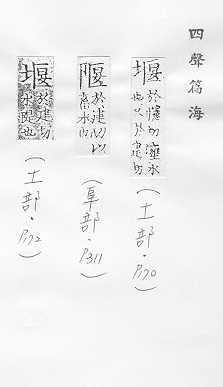 四聲篇海
堰 於幰切壅水
也又於建切
（土部·P.70）
隁 於建切以
畜水也
（阜部·P.311）
堰 於建切
水也
（土部·P.72）